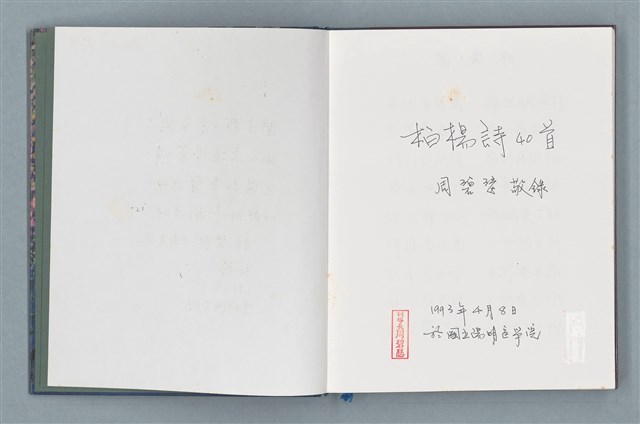 柏楊詩40首
周碧瑟敬錄
1993年4月8日
於國立陽明医学院